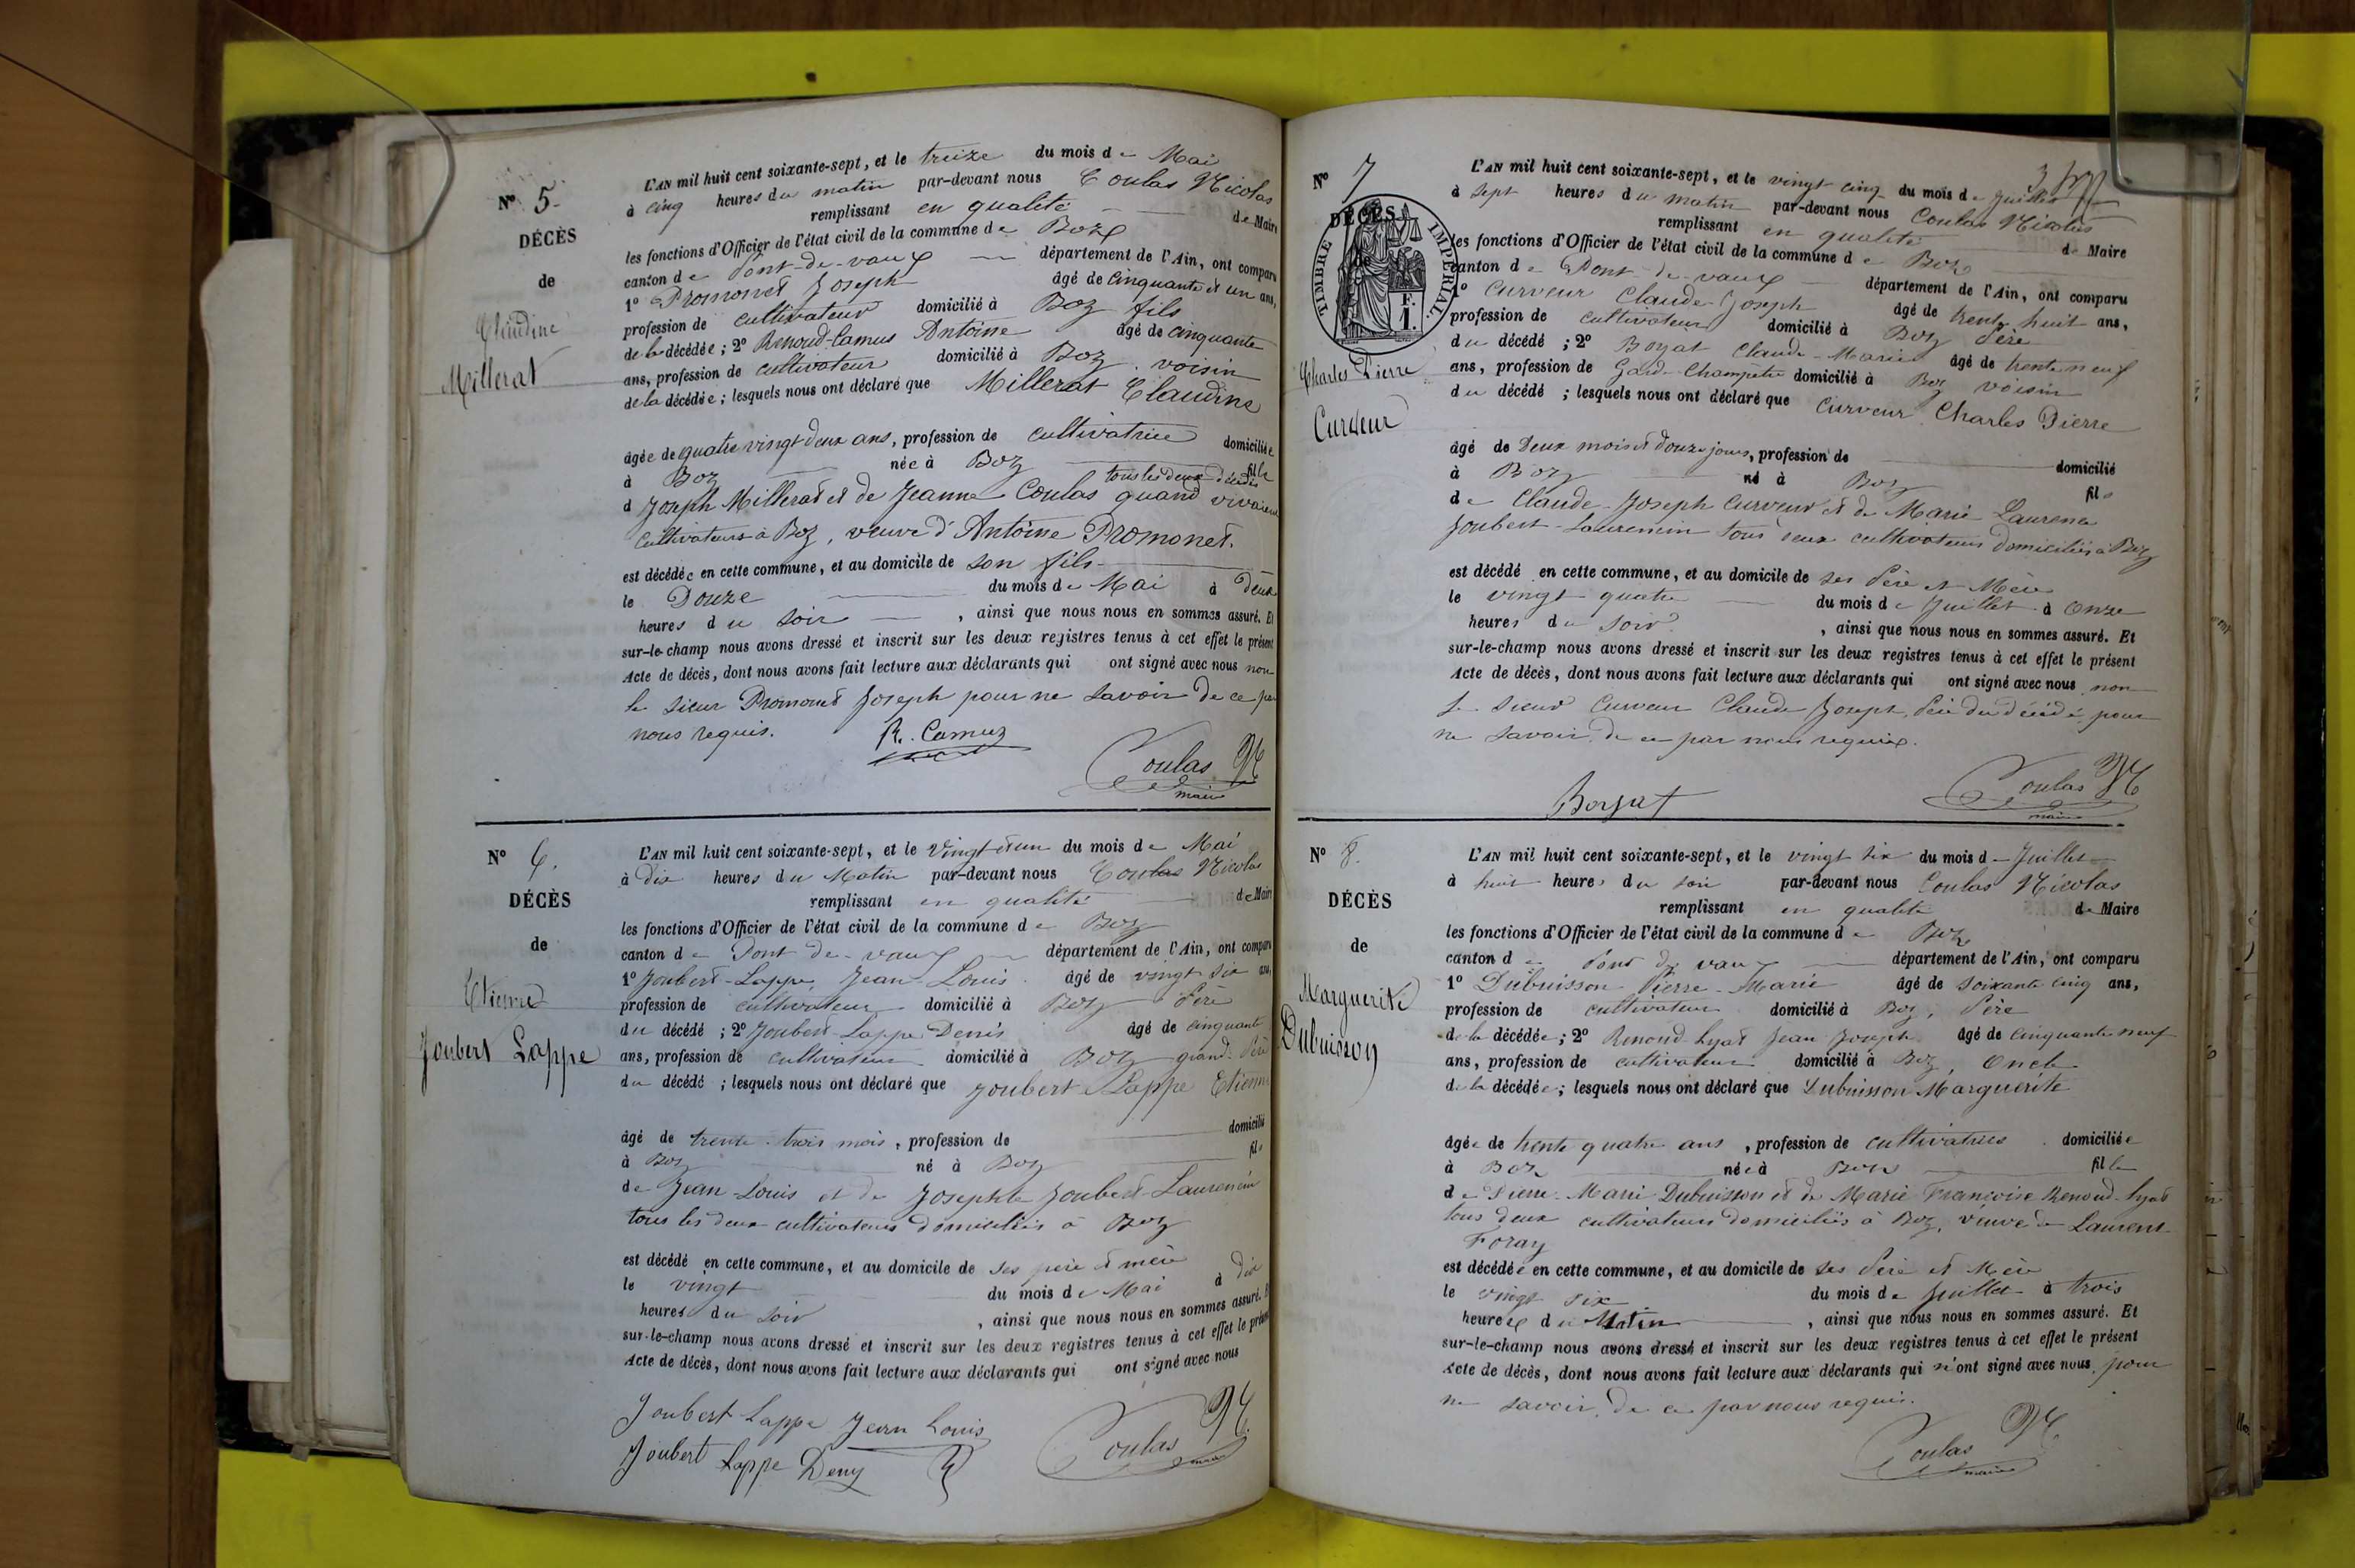 N° 5
DÉCÈS
de
Claudine
Millerat
L'AN mil huit cent soixante-sept, et le treize du mois de Mai
à cinq heures du matin par-devant nous Coulas Nicolas
remplissant en qualité de Maire
les fonctions d'Officier de l'état civil de la commune de Boz
canton de Pont-de-vaux département de l'Ain, ont comparu
1° Promonet Joseph âgé de cinquante et un ans,
profession de cultivateur domicilié à Boz fils
de la décédée ; 2° Renoud-Camus Antoine âgé de cinquante
ans, profession de cultivateur domicilié à Boz voisin
de la décédée ; lesquels nous ont déclaré que Millerat Claudine
âgée de quatre vingt deux ans, profession de cultivatrice domiciliée
à Boz née à Boz fille
tous les deux décédés
d Joseph Millerat et de Jeanne Coulas quand vivaient
cultivateurs à Boz, veuve d'Antoine Promonet.
est décédée en cette commune, et au domicile de son fils
le Douze du mois de Mai à deux
heures du soir , ainsi que nous nous en sommes assuré. Et
sur-le-champ nous avons dressé et inscrit sur les deux registres tenus à cet effet le présent
Acte de décès, dont nous avons fait lecture aux déclarants qui ont signé avec nous non
le sieur Promonet Joseph pour ne savoir de ce par
nous requis.
R. Camuz
Coulas N
maire
N° 6.
DÉCÈS
de
Etienne
Joubert Lappe
L'AN mil huit cent soixante-sept, et le vingt et un du mois de Mai
à dix heures du Matin par-devant nous Coulas Nicolas
remplissant en qualité de Maire
les fonctions d'Officier de l'état civil de la commune de Boz
canton de Pont de-vaux département de l'Ain, ont comparu
1° Joubert-Lappe Jean Louis âgé de vingt six ans,
profession de cultivateur domicilié à Boz Père
du décédé ; 2° Joubert-Lappe Denis âgé de cinquante
ans, profession de cultivateur domicilié à Boz grand-Père
du décédé ; lesquels nous ont déclaré que Joubert Lappe Etienne
âgé de trente-trois mois, profession de domicilié
à Boz né à Boz fils
de Jean-Louis et de Josephte Joubert-Laurencin
tous les deux cultivateurs domiciliés à Boz
est décédé en cette commune, et au domicile de ses père et mère
le vingt du mois de Mai à dix
heures du soir , ainsi que nous nous en sommes assuré. Et
sur-le-champ nous avons dressé et inscrit sur les deux registres tenus à cet effet le présent
Acte de décès, dont nous avons fait lecture aux déclarants qui ont signé avec nous
Joubert Lappe Jean Louis
Joubert Lappe Deny
Coulas N
maire
N° 7
DÉCÈS
TIMBRE IMPÉRIAL.
F.
1.
Charles Pierre
Curveur
L'AN mil huit cent soixante-sept, et le vingt cinq du mois de Juillet
à sept heures du matin par-devant nous Coulas Nicolas
remplissant en qualité de Maire
les fonctions d'Officier de l'état civil de la commune de Boz
canton de Pont-de-vaux département de l'Ain, ont comparu
1° Curveur Claude-Joseph âgé de trente huit ans,
profession de cultivateur domicilié à Boz Père
du décédé ; 2° Boyat Claude-Marie âgé de trente neuf
ans, profession de Garde-Champêtre domicilié à Boz voisin
du décédé ; lesquels nous ont déclaré que Curveur Charles Pierre
âgé de Deux mois et douze jours, profession de domicilié
à Boz né à Boz fils
de Claude-Joseph Curveur et de Marie Laurence
Joubert-Laurencin tous deux cultivateurs domiciliés à Boz
est décédé en cette commune, et au domicile de ses Père et Mère
le vingt quatre du mois de Juillet à onze
heures du soir , ainsi que nous nous en sommes assuré. Et
sur-le-champ nous avons dressé et inscrit sur les deux registres tenus à cet effet le présent
Acte de décès, dont nous avons fait lecture aux déclarants qui ont signé avec nous non
le sieur Curveur Claude Joseph, Père du décédé, pour
ne savoir de ce par nous requis.
Boyat
Coulas N
maire
N° 8.
DÉCÈS
de
Marguerite
Dubuisson
L'AN mil huit cent soixante-sept, et le vingt six du mois d Juillet
à huit heures du soir par-devant nous Coulas Nicolas
remplissant en qualité de Maire
les fonctions d'Officier de l'état civil de la commune de Boz
canton de Pont de vaux département de l'Ain, ont comparu
1° Dubuisson Pierre-Marie âgé de soixante cinq ans,
profession de cultivateur domicilié à Boz, Père
de la décédée ; 2° Renoud-lyat Jean Joseph âgé de cinquante neuf
ans, profession de cultivateur domicilié à Boz, Oncle
de la décédée ; lesquels nous ont déclaré que Dubuisson Marguerite
âgée de trente quatre ans, profession de cultivatrice domiciliée
à Boz née à Boz fille
de Pierre-Marie Dubuisson et de Marie Françoise Renoud-lyat
tous deux cultivateurs domiciliés à Boz, veuve de Laurent
Foray
est décédée en cette commune, et au domicile de ses Père et Mère
le vingt six du mois de Juillet à trois
heures du Matin , ainsi que nous nous en sommes assuré. Et
sur-le-champ nous avons dressé et inscrit sur les deux registres tenus à cet effet le présent
Acte de décès, dont nous avons fait lecture aux déclarants qui n'ont signé avec nous pour
ne savoir de ce par nous requis.
Coulas N
maire